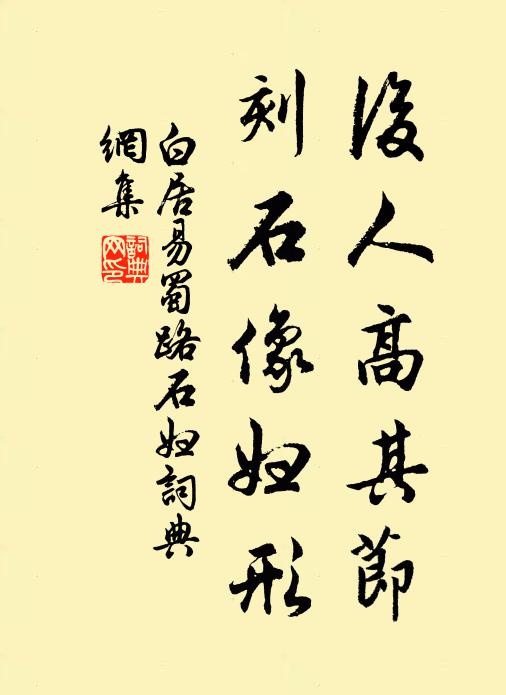 後人高其節
刻石像婦形
白居易蜀路石婦詞典
網集
詞典
网印